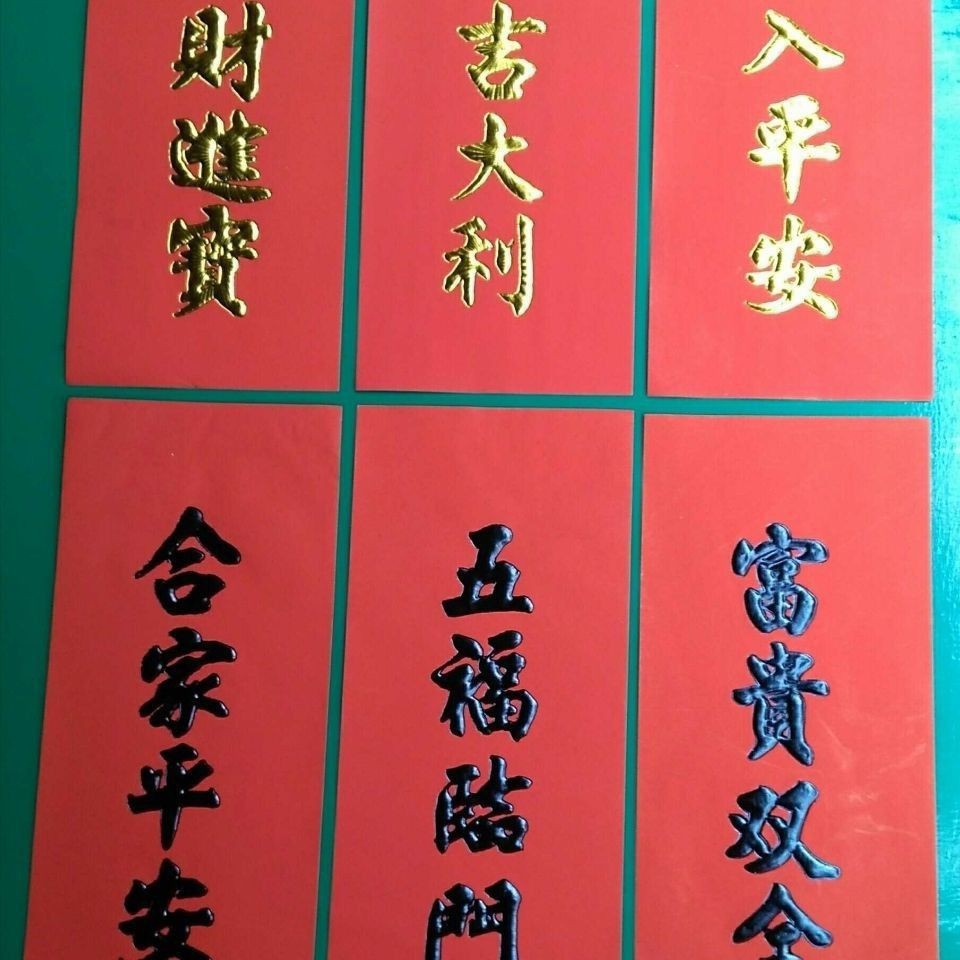 財進寶
吉大利
入平安
合家平安
五福臨門
富貴双全